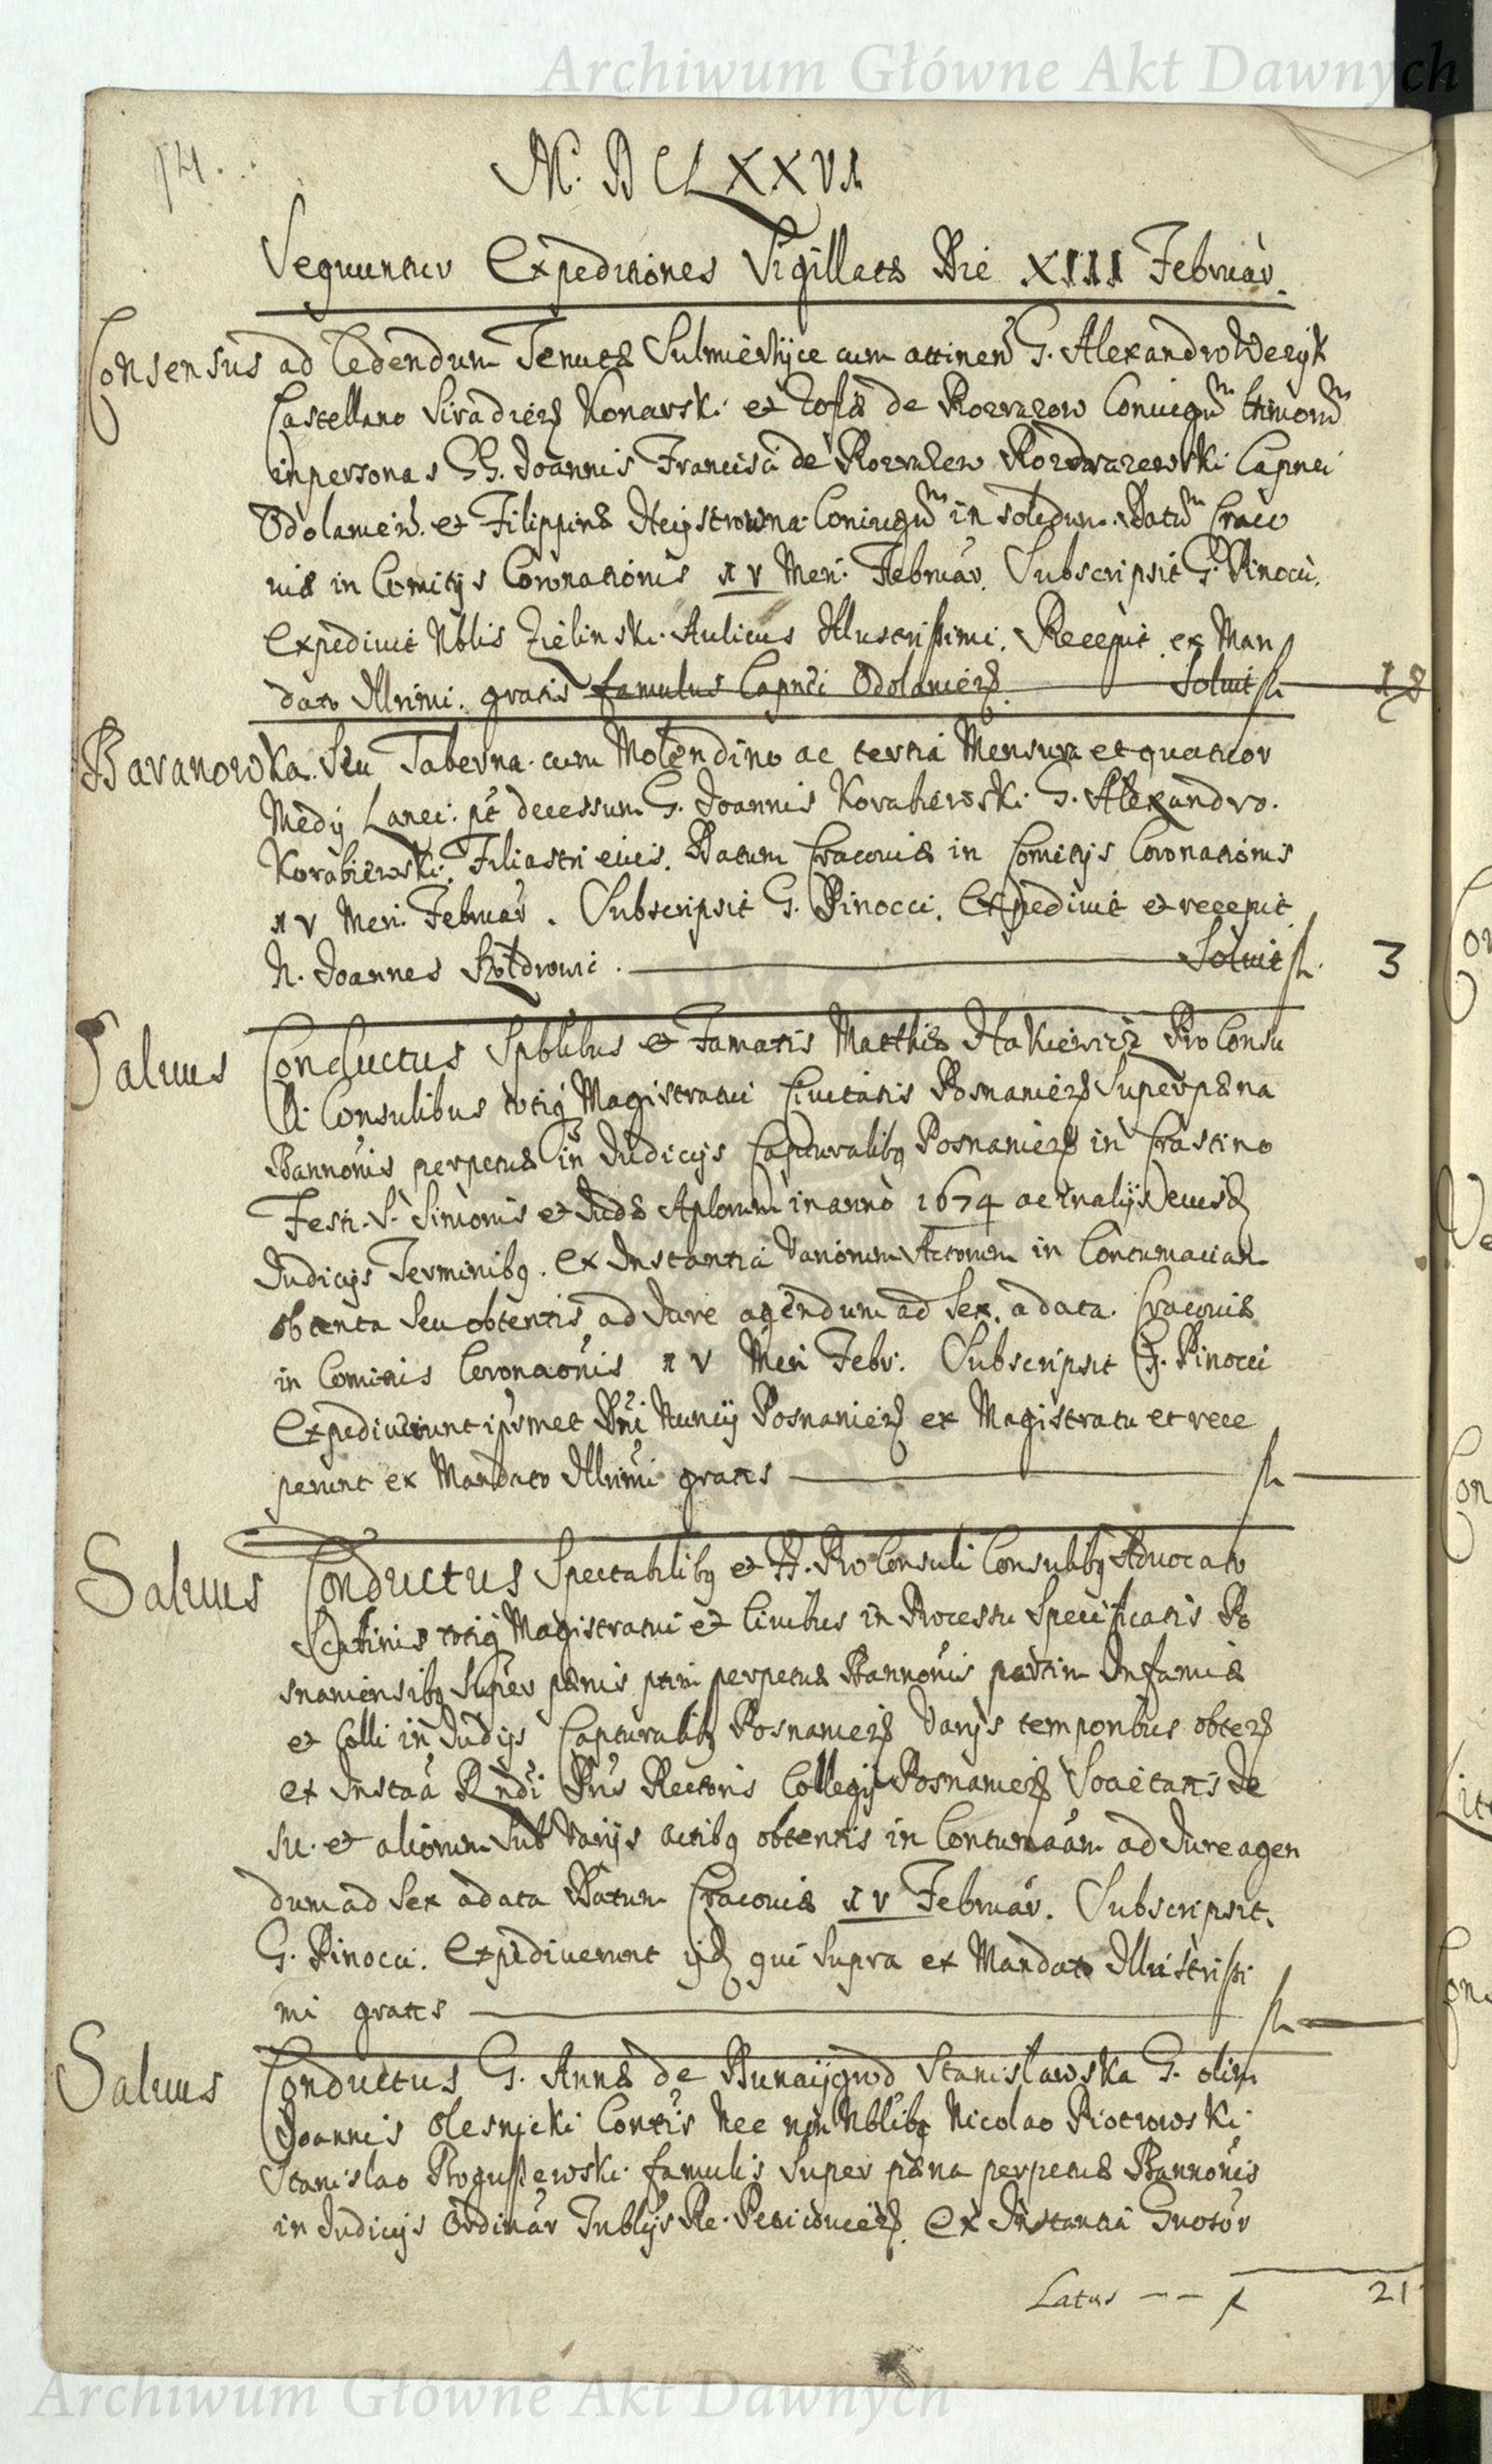 Archiwum Główne Akt Dawnych
14.
M. D C L X X V I
Sequuntur Expeditiones Sigillatæ Die XIII Februar.
Consensus ad Cedendum Tenutæ Sulmierzyce cum attinen G. Alexandro Wezyk
Castellano Siradień Konarski et Zofiæ de Rozrazow Coniugum
in personas GG. Joannis Francisci de Rozrazew Rozdrazewski Capnei
Odolanień. et Filippinæ Coniugum in solidum. Datum Craco
uiæ in Comitijs Coronationis IV Men. Februar. Subscripsit G. Pinocci.
Expediuit Nblis Zielinski Aulicus Illustrissimi. Recepit ex Man
dato Illrimi. gratis famulus Capnei Odolanień. Soluit fl. 18
Baranowka. Seu Taberna cum Molendino ac tertia Mensura et quatuor
Medij Lanei. pt decessum G. Joannis Korabiewski G. Alexandro.
Korabiewski. Filiastri eius. Datum Cracouiæ in Comitijs Coronationis
IV Men. Februar. Subscripsit G. Pinocci. Expediuit et recepit
N. Joannes Soluit fl. 3
Saluus Conductus Spblibus et Famatis Matthiæ Pro Consu
li Consulibus totiq Magistratui Ciuitatis Posnanień Super pæna
Bannonis perpetuæ in Judicijs Capturalibq Posnanień in Crastino
Festi S. Simonis et Judæ Aplorum in anno 1674 ac in alijs eiusd
Judicijs Terminibq. ex Instantia Variorum Actorum in Contumaciam
obtenta Seu obtentis ad Jure agendum ad Sex. a data. Cracouiæ
in Comitiis Coronaonis IV Men Febr. Subscripsit G. Pinocci
Expediuerunt ipsmet Dni Nuncij Posnanień ex Magistratu et rece
perunt ex Mandato Illrimi gratis fl.
Saluus Conductus Spectabilibq et FF. Pro Consuli Consulibq Aduocato
Scabinis totiq Magistratui et Ciuibus in Processu Specificatis Po
snaniensibq Super pænis ptim perpetuæ Bannonis partim Infamiæ
et Colli in Judijs Capturalibq Posnanień Varijs temporibus obten
ex Instaa Rndi Pris Rectoris Collegij Posnanień Societatis Je
su. et aliorum Sub Varijs actibq obtentis in Contumaam ad Jure agen
dum ad Sex a data Datum Cracouiæ IV Februar. Subscripsit.
G. Pinocci. Expediuerunt ijd qui Supra ex Mandato Illustrissi
mi gratis fl.
Saluus Conductus G. Annæ de Stanisławska G. olim
Joannis Olesnicki Contis Nec non Nblibq Nicolao Piotrowski
Stanislao famulis Super pæna perpetuæ Bannonis
in Judicijs Ordinar Ex Instantia Gnosor
Latus -- f 21
Archiwum Główne Akt Dawnych